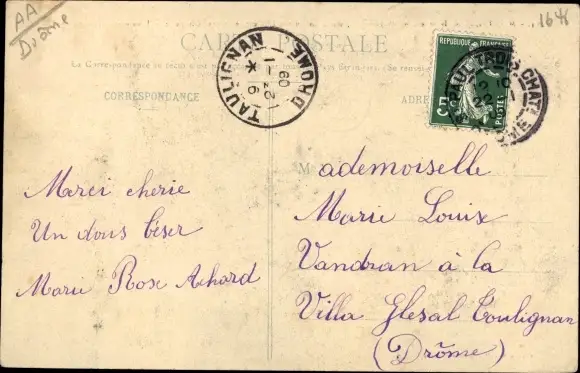 AA
Drôme
164
CARTE POSTALE
CORRESPONDANCE
TAULIGNAN
DRÔME
9 *
22-1
09
REPUBLIQUE FRANÇAISE
POSTES
Merci cherie
Un dous béser
Marie Rose Achard
Mademoiselle
Marie Louise
Vandran à la
Villa Glesal Toulignan
(Drôme)